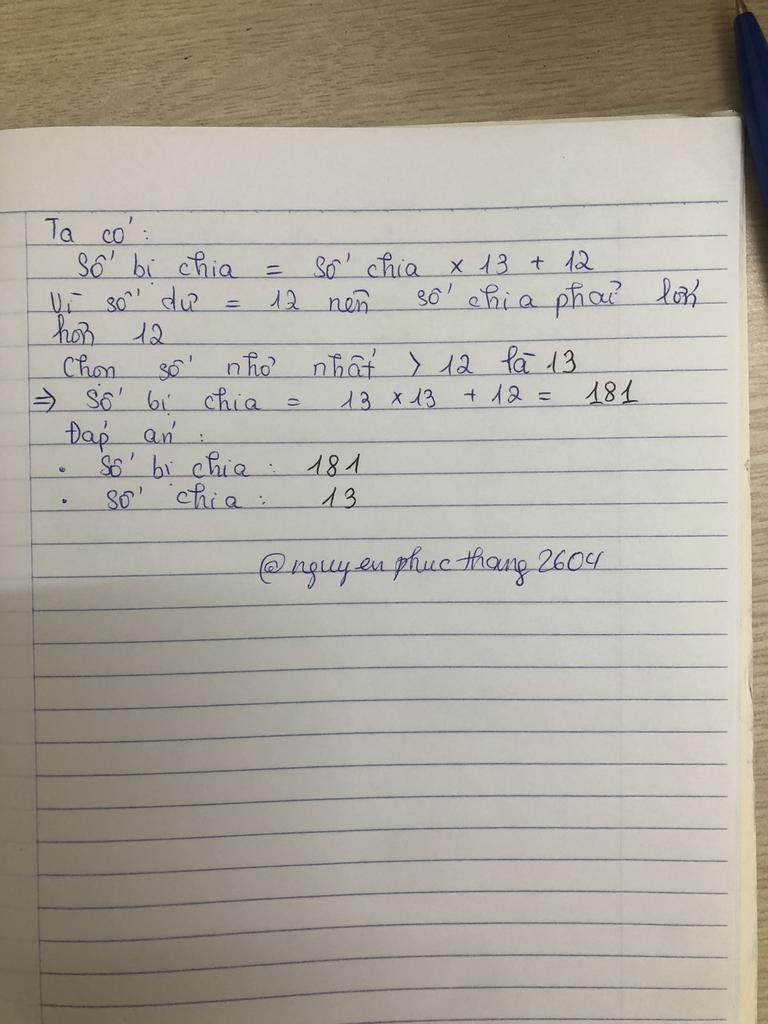 Ta có:
Số bị chia = số chia x 13 + 12
Vì số dư = 12 nên số chia phải lớn
hơn 12
Chọn số nhỏ nhất > 12 là 13
⇒ Số bị chia = 13 x 13 + 12 = 181
Đáp án:
• Số bị chia: 181
• Số chia: 13
@nguyenphucthang2604